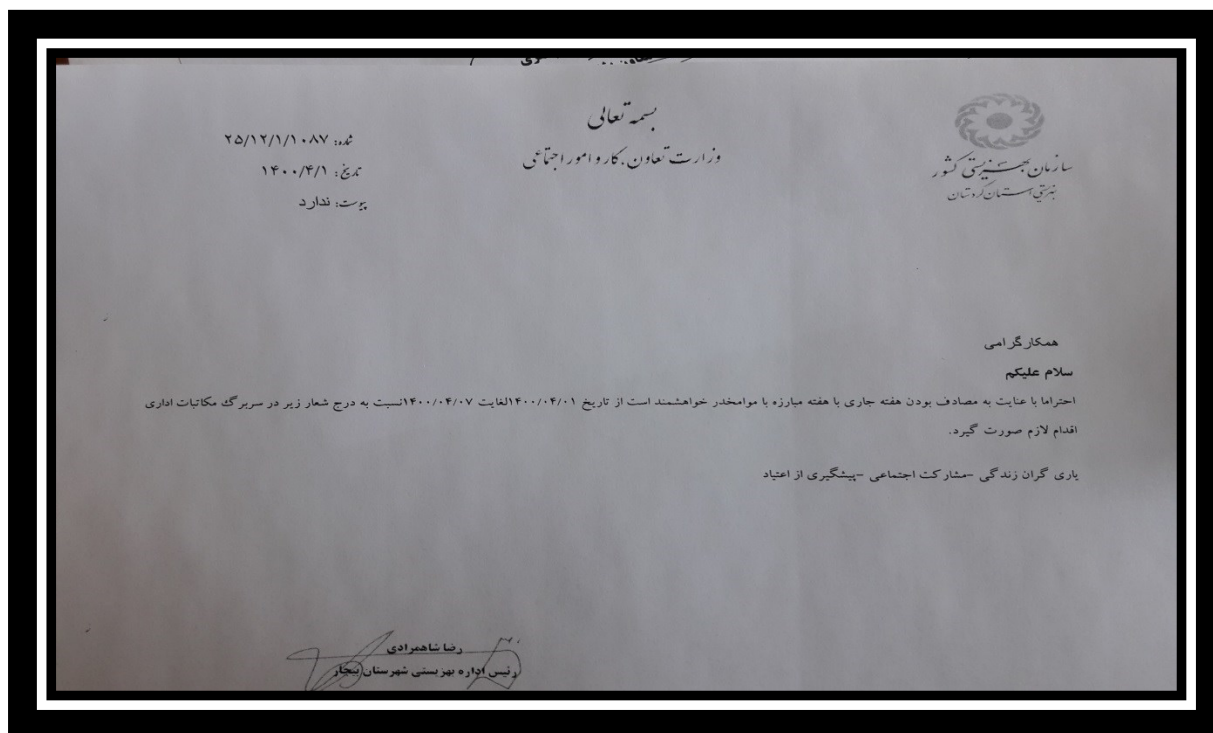 بسمه تعالی
وزارت تعاون، کار و امور اجتماعی
سازمان بهزیستی کشور
بهزیستی استان کردستان
شماره: ۲۵/۱۲/۱/۱۰۸۷
تاریخ: ۱۴۰۰/۴/۱
پیوست: ندارد
همکار گرامی
سلام علیکم
احتراما با عنایت به مصادف بودن هفته جاری با هفته مبارزه با موامخدر خواهشمند است از تاریخ ۱۴۰۰/۰۴/۰۱لغایت ۱۴۰۰/۰۴/۰۷نسبت به درج شعار زیر در سربرگ مکاتبات اداری
اقدام لازم صورت گیرد.
یاری گران زندگی -مشارکت اجتماعی -پیشگیری از اعتیاد
رضا شاهمرادی
رئیس اداره بهزیستی شهرستان بیجار